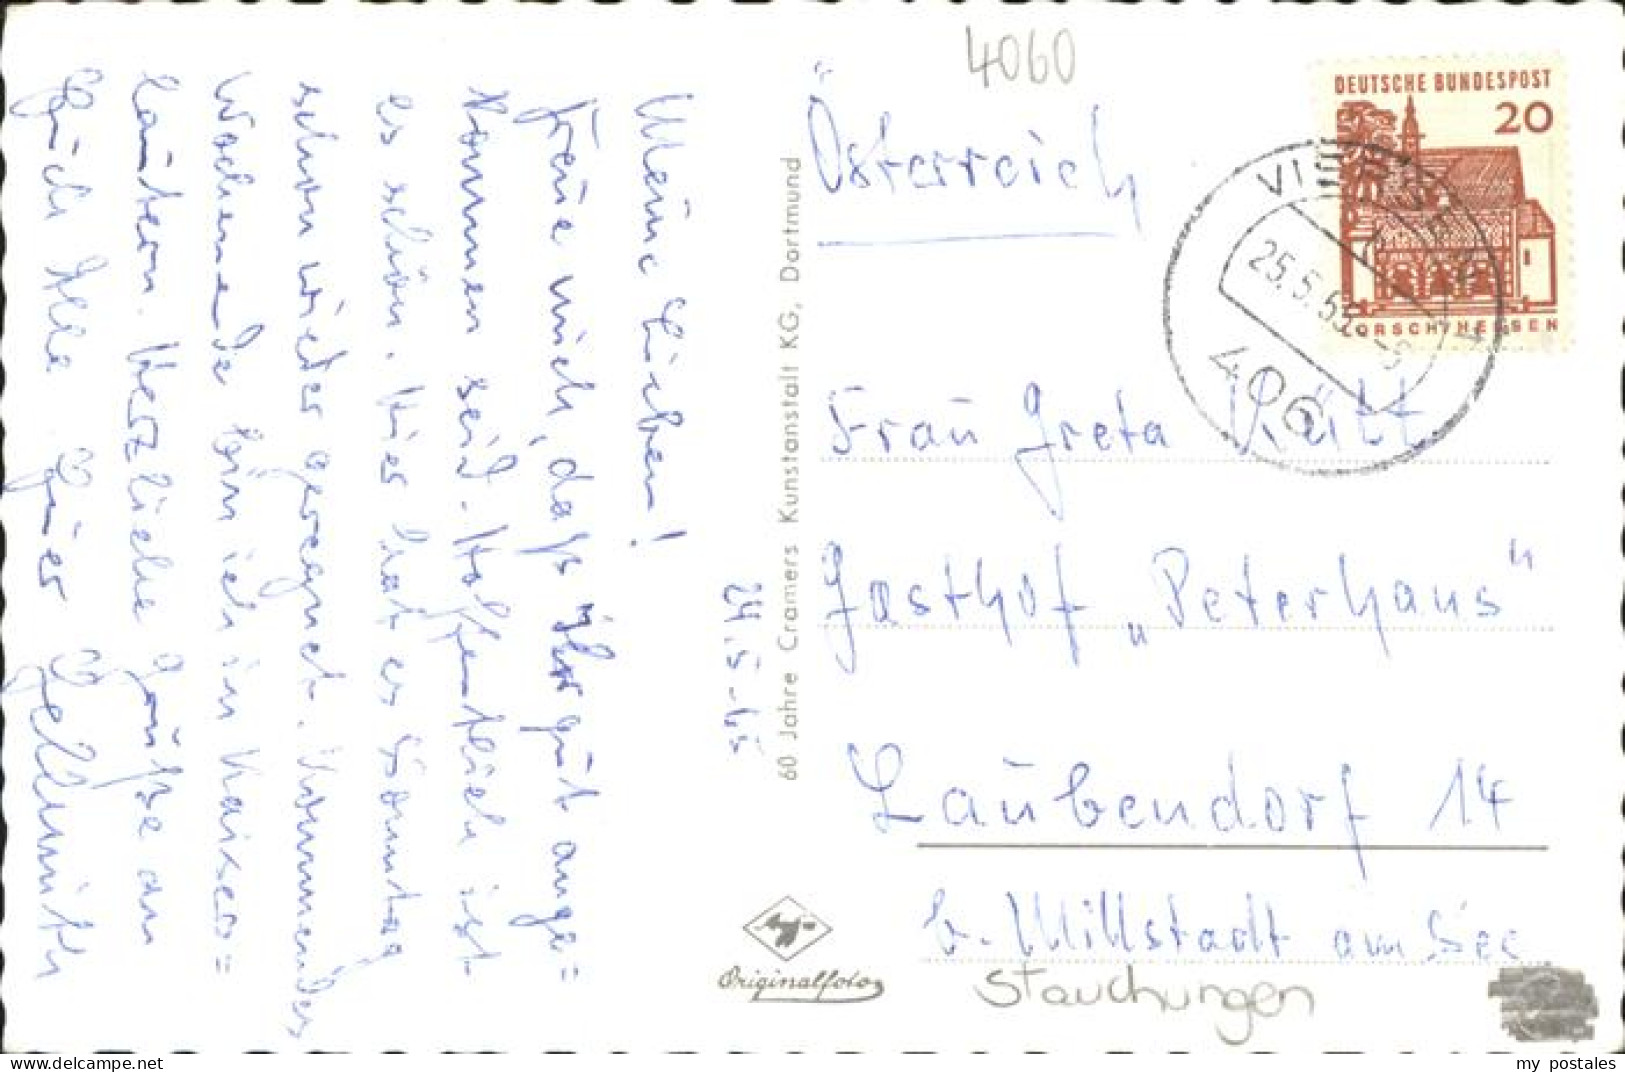 4060
Österreich
DEUTSCHE BUNDESPOST
20
LORSCH/HESSEN
25.5.65
406
Frau Greta
Gasthof „Peterhaus"
Laubendorf 14
b. Millstadt am See
Stauchungen
60 Jahre Cramers Kunstanstalt KG, Dortmund
Originalfoto
24.5.65
Meine Lieben!
Freue mich, daß Ihr gut ange=
kommen seid. Hoffentlich ist
es schön. Hier hat es Sonntag
schon wieder geregnet. Kommendes
Wochenende bin ich in Kaisers=
lautern. Herzliche Grüße an
Euch Alle Euer Hellmuth
my postales